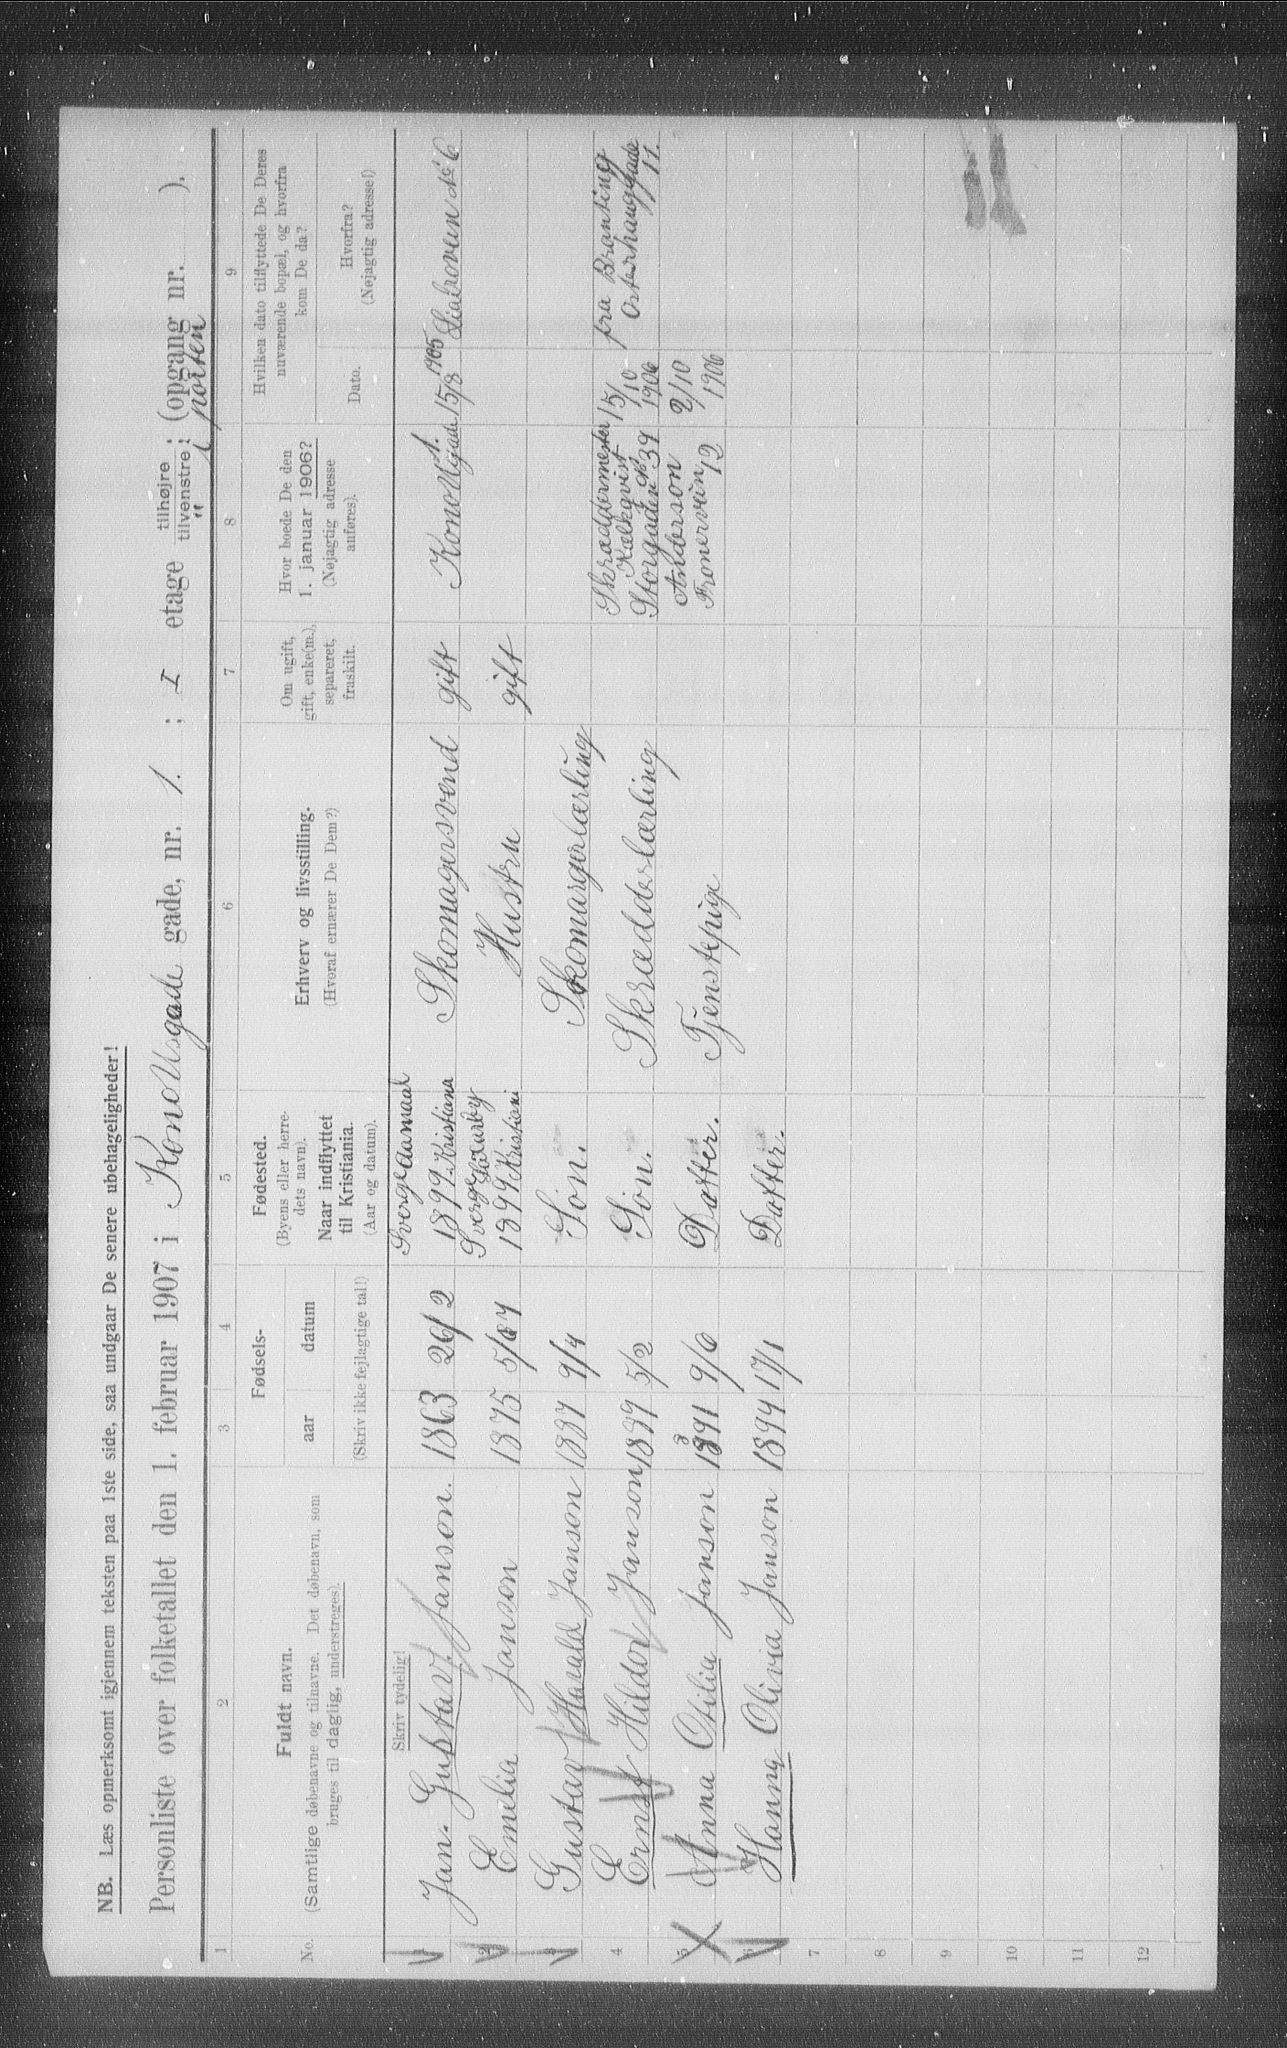 NB. Læs opmerksomt igjennem teksten paa 1ste side, saa undgaar De senere ubehageligheder!
Personliste over folketallet den 1. februar 1907 i Konows gade gade, nr. 1. ; I etage tilhøjre tilvenstre ; (opgang nr. ).
" i porten
1 2 3 4 5 6 7 8 9
No.
Fuldt navn.
(Samtlige døbenavne og tilnavne. Det døbenavn, som
bruges til daglig, understreges).
Fødsels-
aar datum
(Skriv ikke fejlagtige tal!)
Fødested.
(Byens eller herre-
dets navn).
Naar indflyttet
til Kristiania.
(Aar og datum).
Erhverv og livsstilling.
(Hvoraf ernærer De Dem?)
Om ugift,
gift, enke(m.),
separeret,
fraskilt.
Hvor boede De den
1. januar 1906?
(Nøjagtig adresse
anføres).
Hvilken dato tilflyttede De Deres
nuværende bopæl, og hvorfra
kom De da?
Dato.
Hvorfra?
(Nøjagtig adresse!)
Skriv tydelig!
Sverge Aamaal
1 Jan. Gustav. Janson. 1863 26/2 1899. Kristiana Skomagersvend gift Konows gade 1. 15/8 1905 No 6
Sverge
2 Emelia Janson 1875 1899 Kristiani Hustru gift
3 Gustav Harald Janson 1887 9/4 Søn. Skomargerlærling
4 Ernst Hildor Janson 1889 5/2 Søn. Skrædderlærling Skræddermester
Storgaden No 39 15/10 1906 fra Branting
Osterhausgade 11.
5 Anna Otilia Janson 1891 9/6 Datter. Tjenstepige Anderson
Fronervein 12 2/10 1906
6 Hanna Olivia Janson 1894 17/1 Datter.
7
8
9
10
11
12